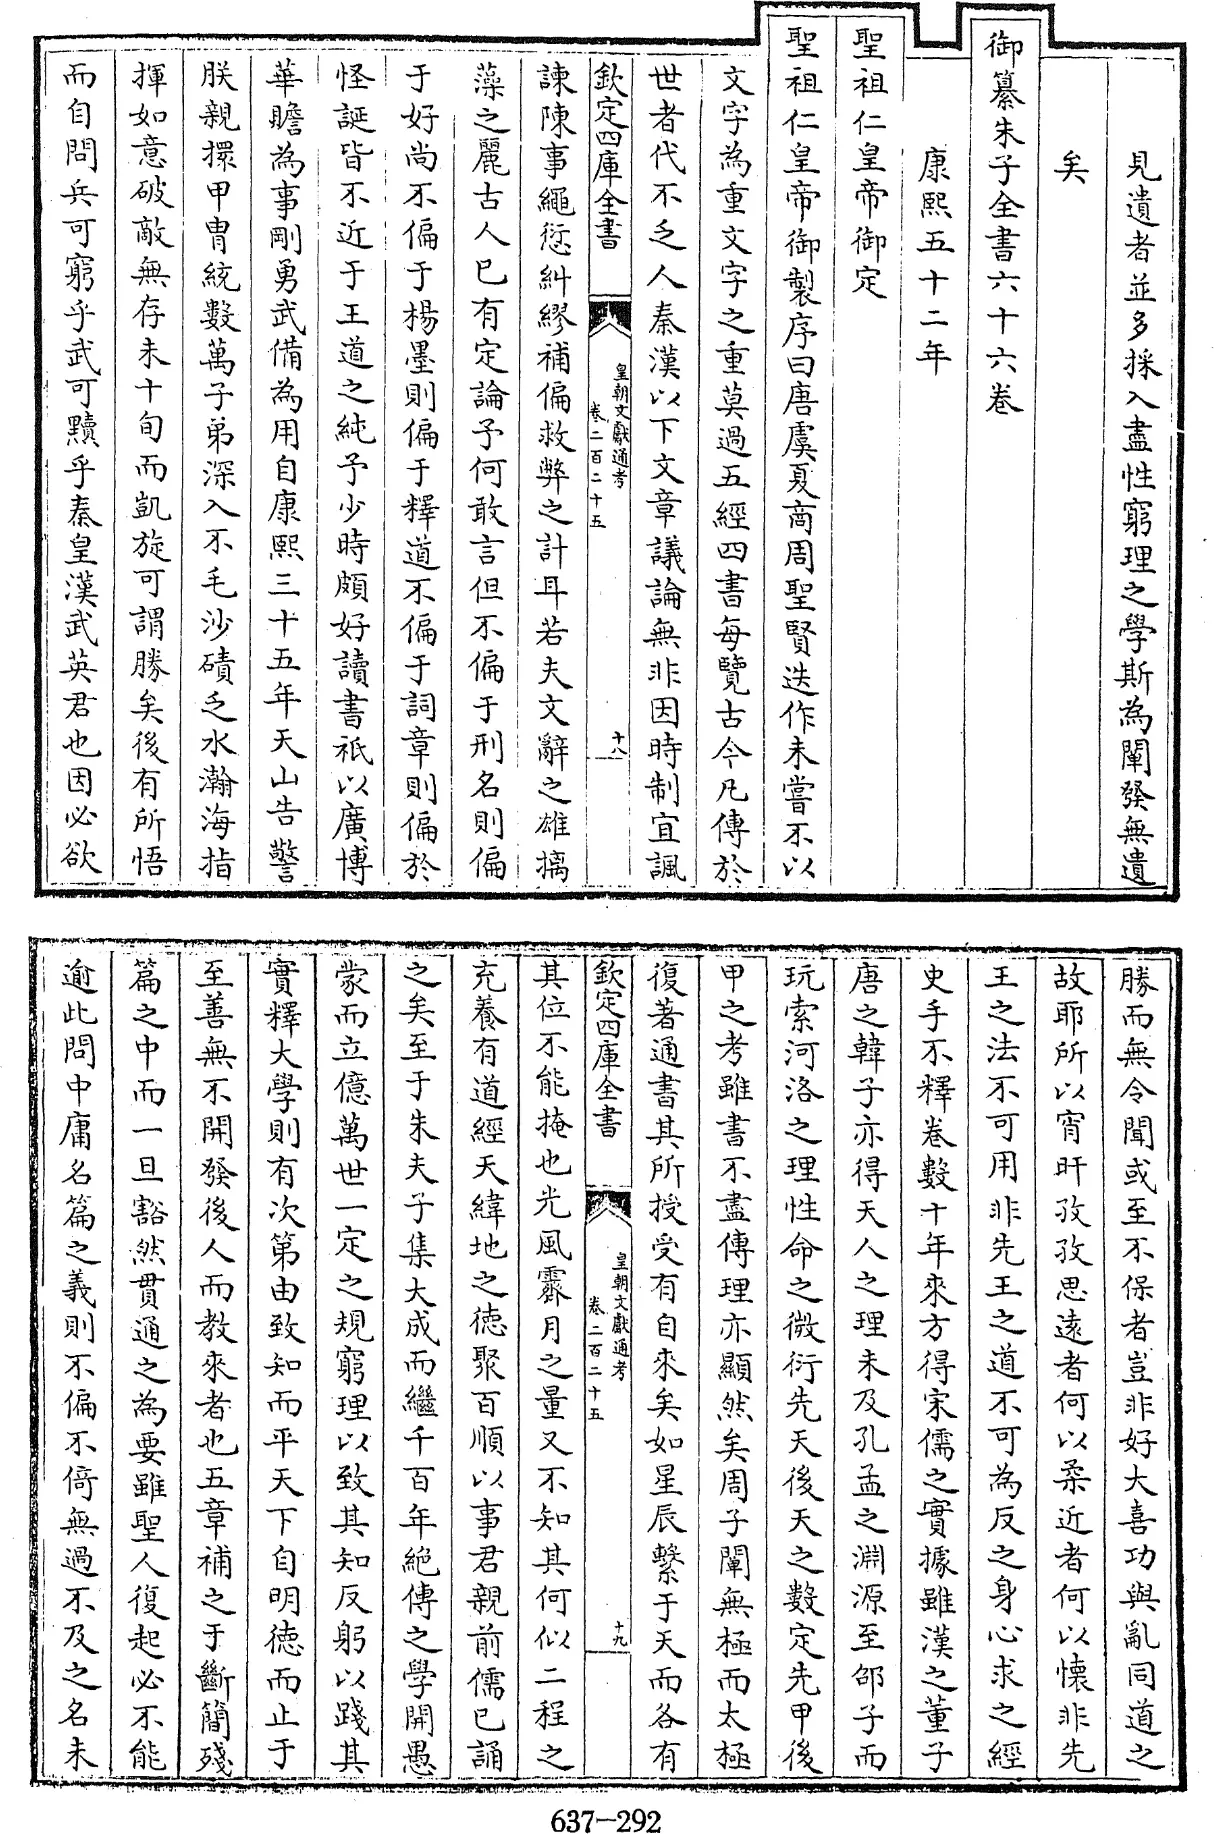 見遺者並多採入盡性窮理之學斯為闡發無遺
矣
御纂朱子全書六十六卷
康熙五十二年
聖祖仁皇帝御定
聖祖仁皇帝御製序曰唐虞夏商周聖賢迭作未嘗不以
文字為重文字之重莫過五經四書每覽古今凡傳於
世者代不乏人秦漢以下文章議論無非因時制宜諷
欽定四庫全書
皇朝文獻通考
卷二百二十五
十八
諫陳事繩愆糾繆補偏救弊之計耳若夫文辭之雄摛
藻之麗古人已有定論予何敢言但不偏于刑名則偏
于好尚不偏于楊墨則偏于釋道不偏于詞章則偏於
怪誕皆不近于王道之純予少時頗好讀書祇以廣博
華贍為事剛勇武備為用自康熙三十五年天山告警
朕親擐甲冑統數萬子弟深入不毛沙磧乏水瀚海指
揮如意破敵無存未十旬而凱旋可謂勝矣後有所悟
而自問兵可窮乎武可黷乎秦皇漢武英君也因必欲
勝而無令聞或至不保者豈非好大喜功與亂同道之
故耶所以宵旰孜孜思遠者何以柔近者何以懷非先
王之法不可用非先王之道不可為反之身心求之經
史手不釋卷數十年來方得宋儒之實據雖漢之董子
唐之韓子亦得天人之理未及孔孟之淵源至邵子而
玩索河洛之理性命之微衍先天後天之數定先甲後
甲之考雖書不盡傳理亦顯然矣周子闡無極而太極
復著通書其所授受有自來矣如星辰繫于天而各有
欽定四庫全書
皇朝文獻通考
卷二百二十五
十九
其位不能掩也光風霽月之量又不知其何似二程之
充養有道經天緯地之德聚百順以事君親前儒已誦
之矣至于朱夫子集大成而繼千百年絕傳之學開愚
蒙而立億萬世一定之規窮理以致其知反躬以踐其
實釋大學則有次第由致知而平天下自明德而止于
至善無不開發後人而教來者也五章補之于斷簡殘
篇之中而一旦豁然貫通之為要雖聖人復起必不能
逾此問中庸名篇之義則不偏不倚無過不及之名未
637-292